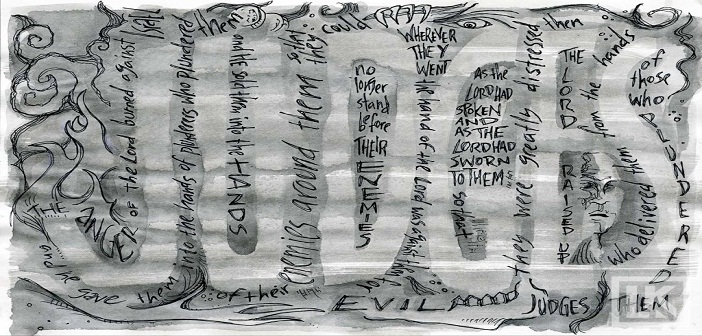 THE
ANGER
of the Lord burned against
and he gave
them
into the hands of plunderers who plundered
them
and he sold them into the
HANDS
of their
enemies around them
so that
they
could
no
longer
stand
before
THEIR
ENEMIES
RAH
WHEREVER
THEY
WENT
the hand of the Lord was against them
for
EVIL
AS the
LORD HAD
SPOKEN
AND
AS THE
LORD HAD
SWORN
TO THEM
so that
they were greatly distressed
then
THE
LORD
RAISED UP
JUDGES
who delivered them
from the hands
of
those
who
PLUNDERED
THEM